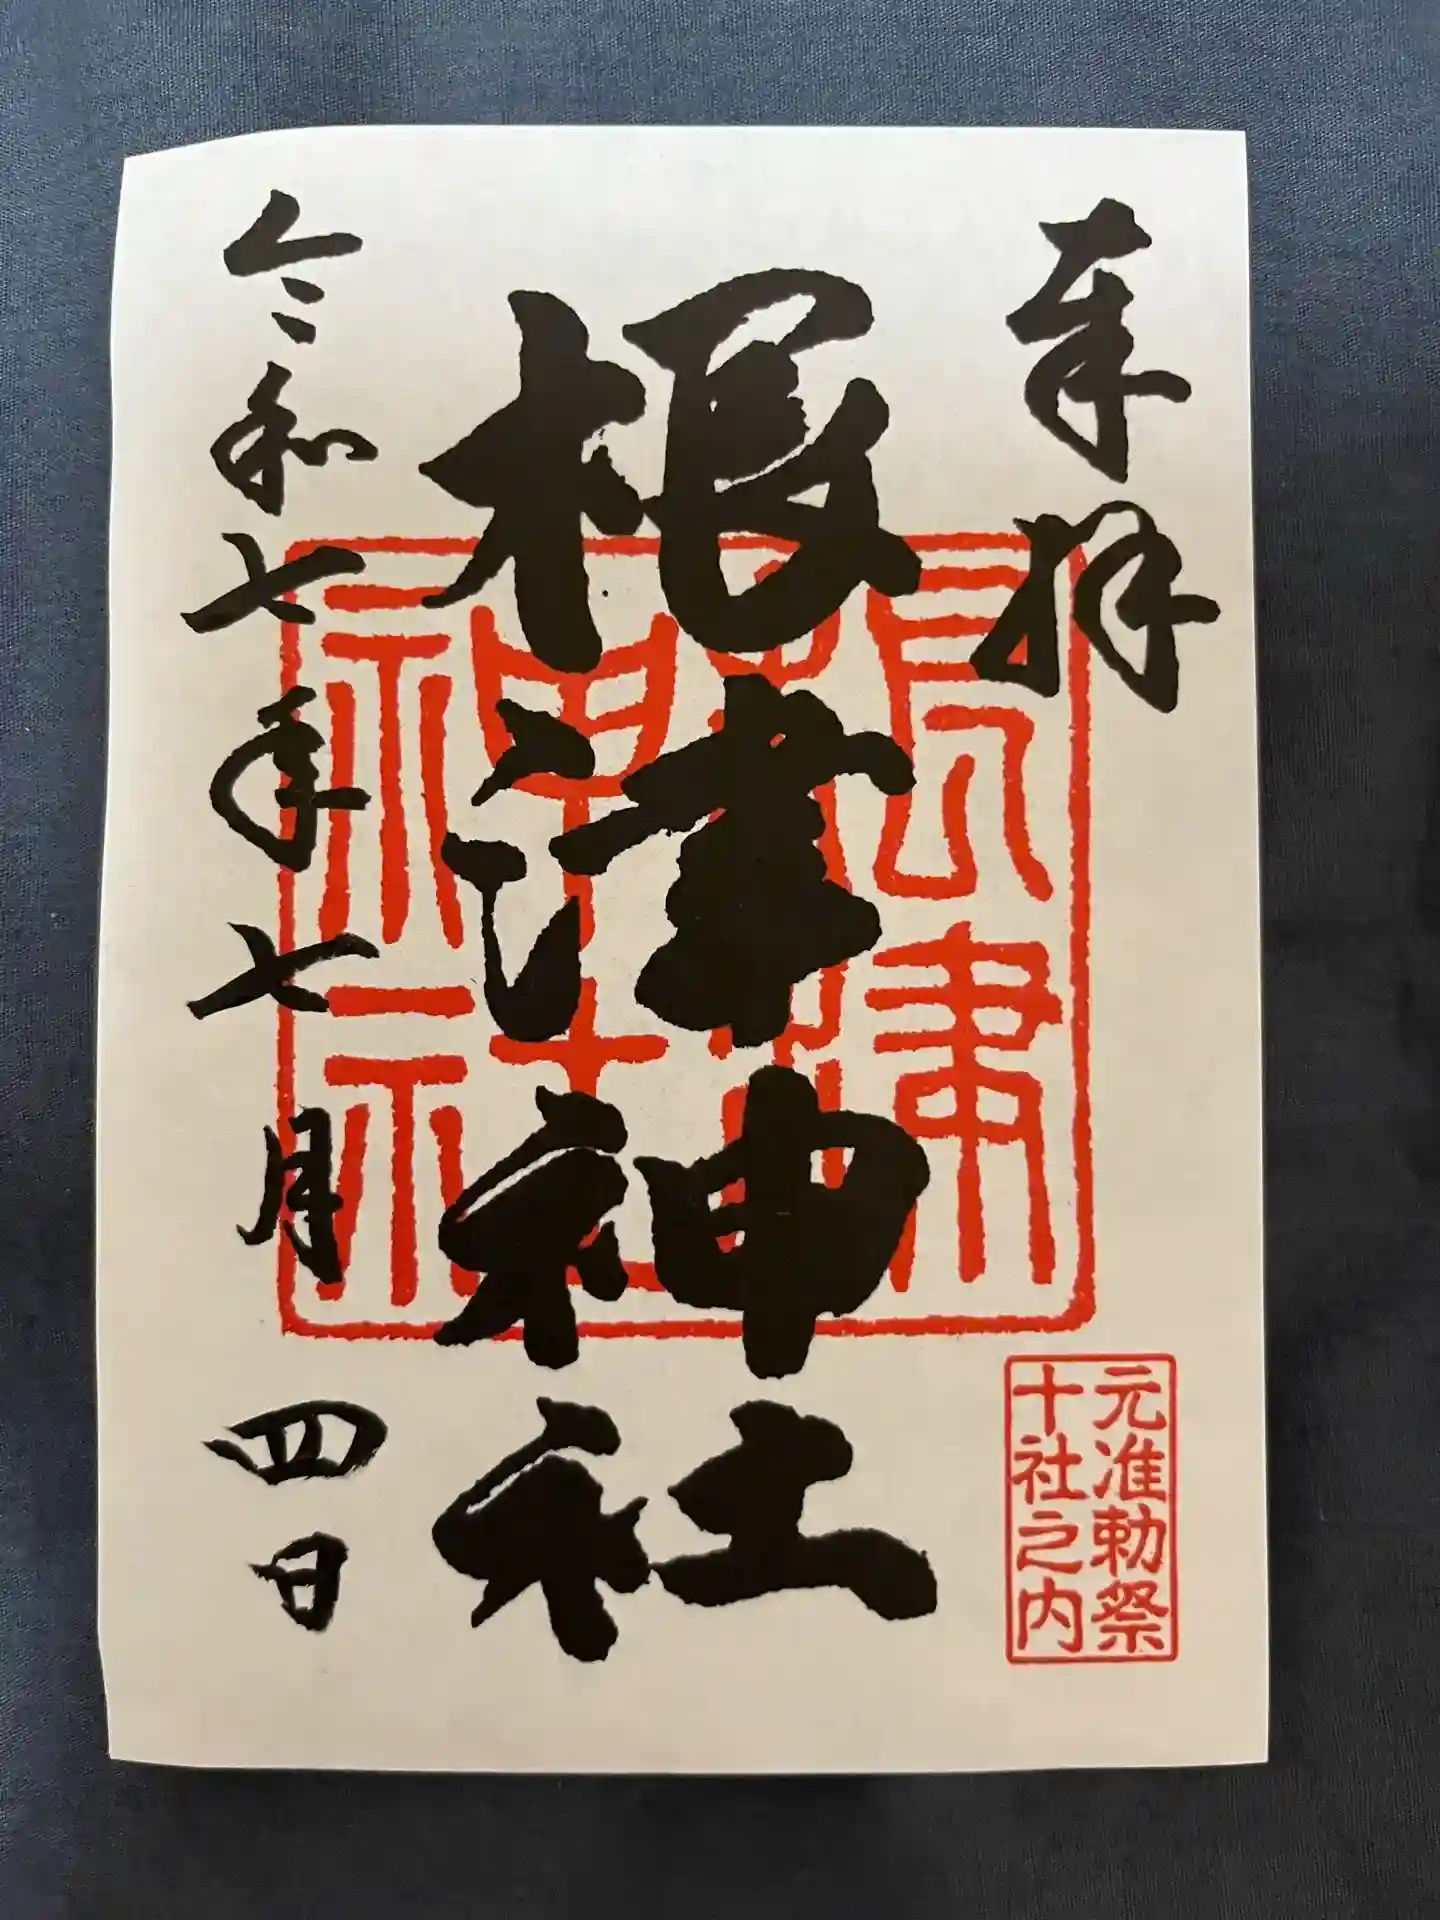 奉拝
根津神社
令和七年七月四日
根津
神社
元准勅祭
十社之内